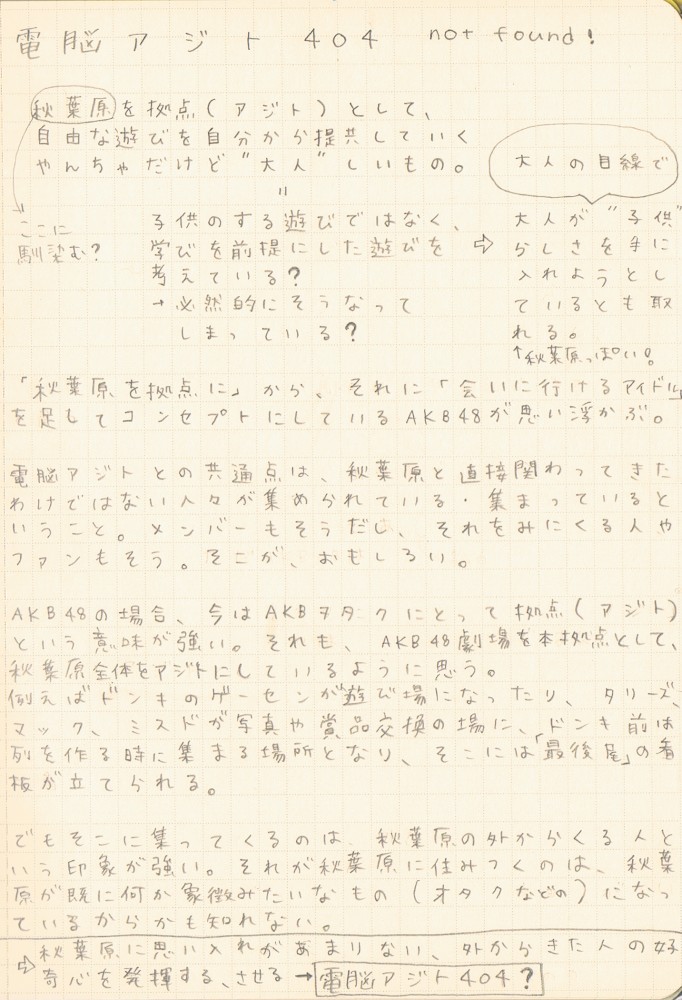 電脳アジト404 not found!
秋葉原を拠点(アジト)として、
自由な遊びを自分から提供していく
やんちゃだけど"大人"しいもの。
〃
大人の目線で
ここに
馴染む?
子供のする遊びではなく、
学びを前提にした遊びを
考えている?
→必然的にそうなって
しまっている?
⇨
大人が"子供"
らしさを手に
入れようとし
ているとも取
れる。
↑秋葉原っぽい!
「秋葉原を拠点に」から、それに「会いに行けるアイドル」
を足してコンセプトにしているAKB48が思い浮かぶ。
電脳アジトとの共通点は、秋葉原と直接関わってきた
わけではない人々が集められている・集まっていると
いうこと。メンバーもそうだし、それをみにくる人や
ファンもそう。そこが、おもしろい。
AKB48の場合、今はAKBヲタクにとって拠点(アジト)
という意味が強い。それも、AKB48劇場を本拠点として、
秋葉原全体をアジトにしているように思う。
例えばドンキのゲーセンが遊び場になったり、タリーズ、
マック、ミスドが写真や賞品交換の場に、ドンキ前は
列を作る時に集まる場所となり、そこには「最後尾」の看
板が立てられる。
でもそこに集ってくるのは、秋葉原の外からくる人と
いう印象が強い。それが秋葉原に住みつくのは、秋葉
原が既に何か象徴みたいなもの(オタクなどの)になっ
ているからかも知れない。
⇨秋葉原に思い入れがあまりない、外からきた人の好
奇心を発揮する、させる→電脳アジト404?